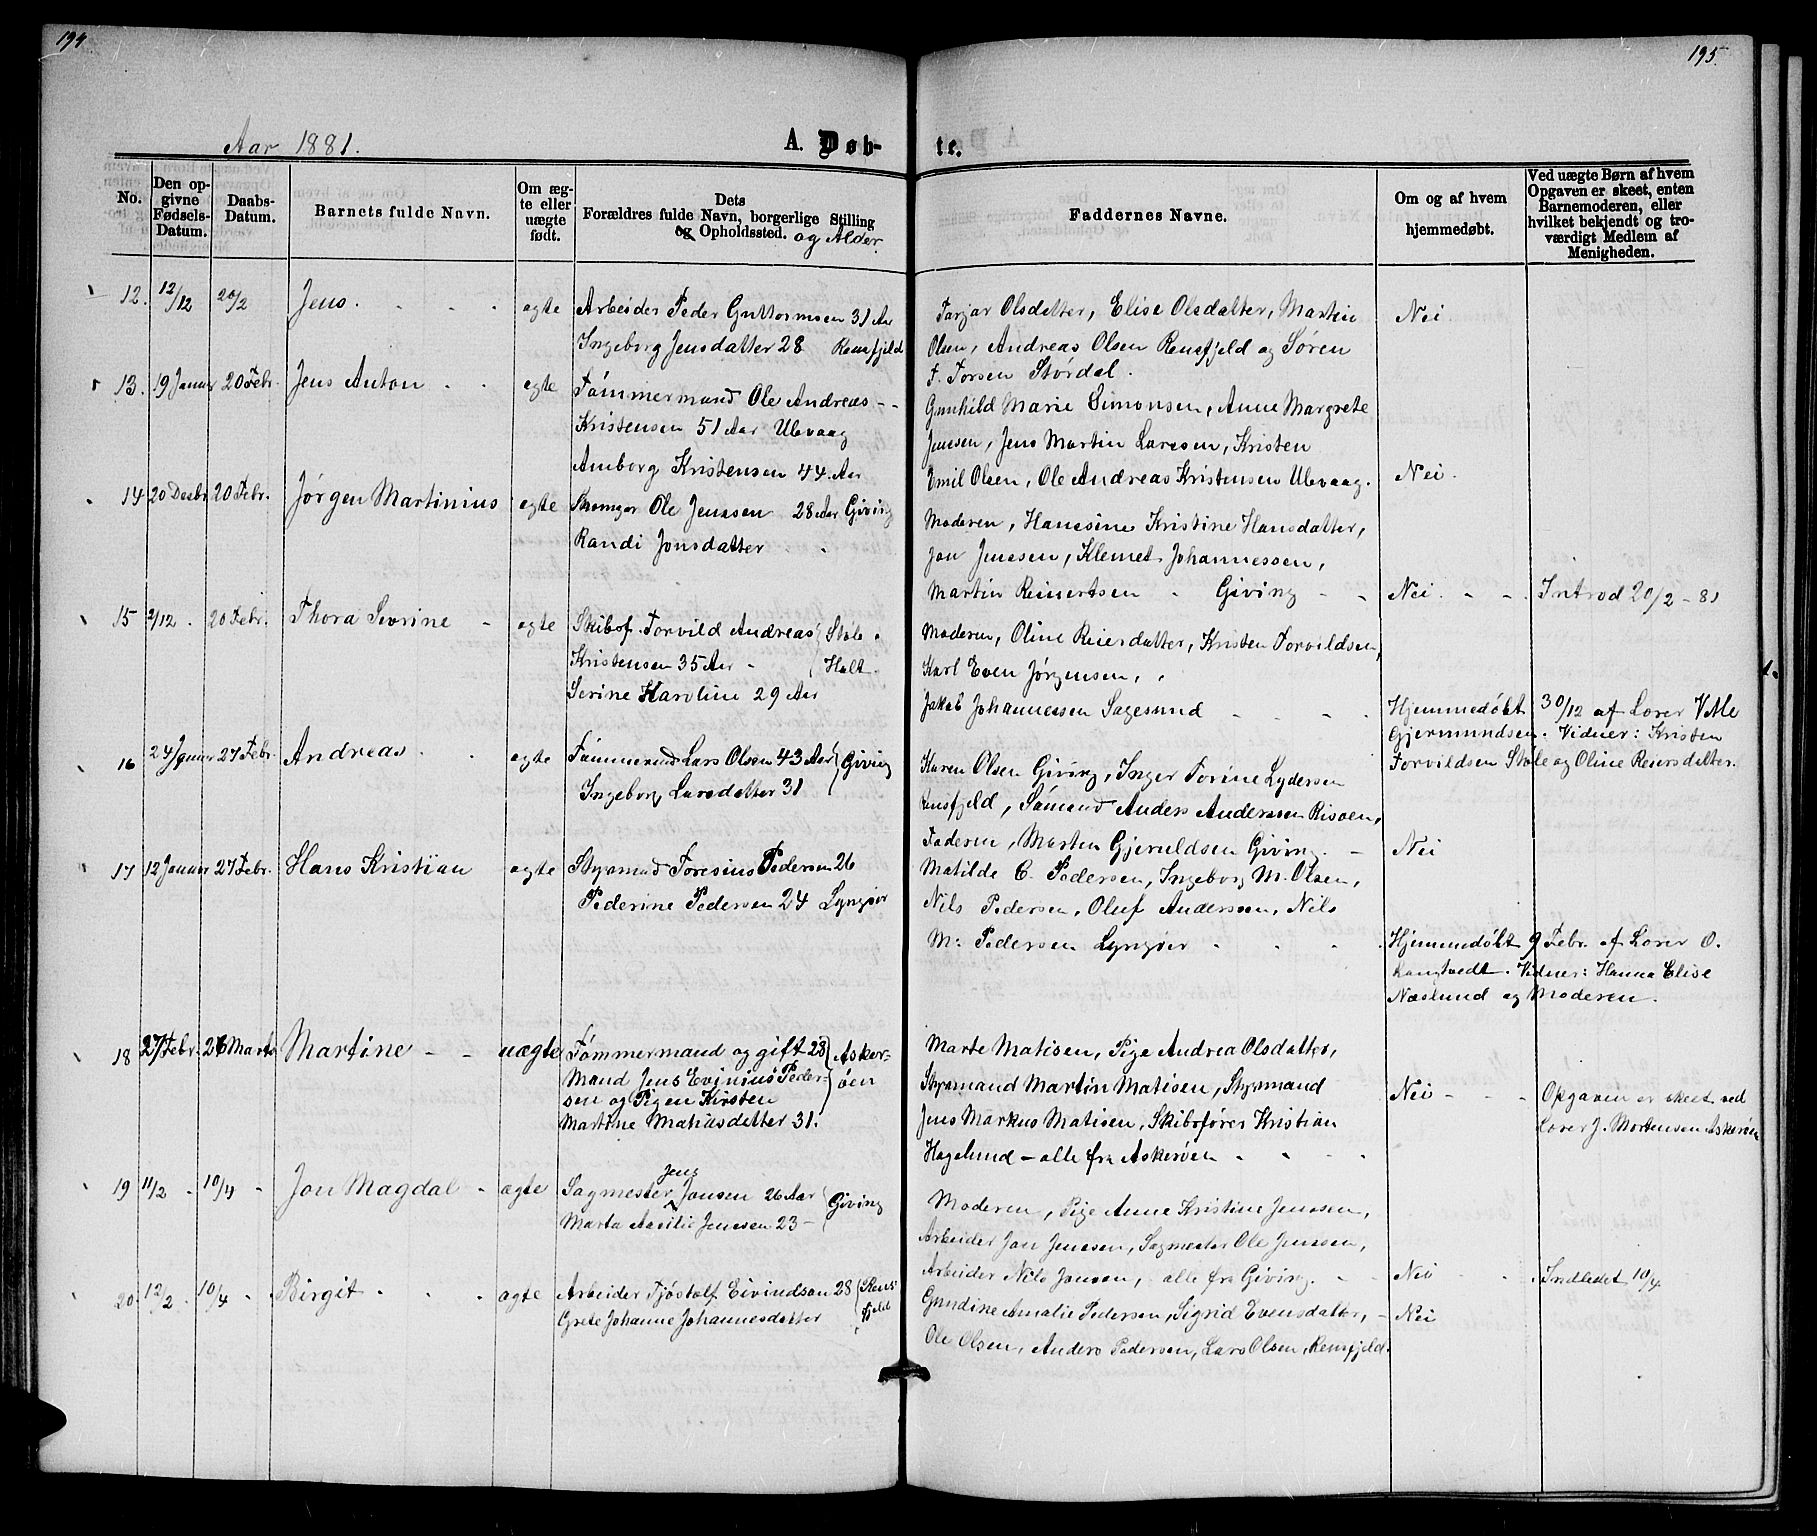 194
195
Aar 1881.
A. Døb-
te.
No.
Den opgivne Fødsels-Datum.
Daabs-Datum.
Barnets fulde Navn.
Om ægte eller uægte født.
Dets Forældres fulde Navn, borgerlige Stilling og Opholdssted. og Alder.
Faddernes Navne.
Om og af hvem hjemmedøbt.
Ved uægte Børn af hvem Opgaven er skeet, enten Barnemoderen, eller hvilket bekjendt og troværdigt Medlem af Menigheden.
12. 12/12 20/2 Jens. agte Arbeider Peder Guttormsen 31 Aar
Ingeborg Jensdatter 28 Rensfjeld
Tarjar Olsdatter, Elise Olsdatter, Martin
Olsen, Andreas Olsen Rensfjeld og Søren
F. Torsen Stördal.
Nei.
13. 19 Januar 20 Febr. Jens Anton agte Tømmermand Ole Andreas
Kristensen 51 Aar Ulevaag
Amborg Kristensen 44 Aar
Gunhild Marie Simonsen, Anne Margrete
Jensen, Jens Martin Larssen, Kristen
Emil Olsen, Ole Andreas Kristensen Ulevaag.
Nei.
14 20 Decbr 20 Febr. Jørgen Martinius agte Ole Jenssen 28 Aar Giving
Randi Jonsdatter
Moderen, Hansine Kristine Hansdatter,
Jon Jenssen, Klemet Johannessen,
Martin Reinertsen - Giving - -
Nei. Introd 20/2 - 81
15 2/12 20 Febr. Thora Sevrine - agte Skibsf. Torvild Andreas Støle
Kristensen 35 Aar - Holt.
Serine Karoline 29 Aar
Moderen, Oline Reiersdatter, Kristen Torvildsen,
Karl Even Jørgensen,
Jakob Johannessen Sagesund
Hjemmedøbt 30/12 af Lærer
Gjermundsen. Vidner: Kristen
Torvildsen Støle og Oline Reiersdatter.
16 24 Januar 27 Febr. Andreas. agte Tømmermd Lars Olsen 43 Aar Giving
Ingeborg Larsdatter 31
Karen Olsen Giving, Inger Torine Lydersen
Rensfjeld, Sømand Anders Anderssen Risøen,
Faderen, Morten Gjeruldsen Giving. -
Nei
17 12 Januar 27 Febr. Hans Kristian agte Styrmand Toresius Pedersen 26
Pederine Pedersen 24 Lyngør
Matilde C. Pedersen, Ingeborg M. Olsen,
Nils Pedersen, Oluf Anderssen, Nils
M: Pedersen Lyngøer
Hjemmedøbt 9 Febr. af Lærer O.
Langtvedt. Vidner: Hanna Elise
Næslund og Moderen.
18 27 Febr. 26 Marts Martine - - uægte Tømmermand og gift 28 Asker-
Mand Jens Evinius Peder- øen
sen og Pigen Kirsten
Martine Matiasdatter 31.
Marte Matisen, Pige Andrea Olsdatter,
Styrmand Martin Matisen, Styrmand
Jens Markus Matisen, Skibsfører Kristian
Hagelund - alle fra Askerøen
Nei - - - Opgaven er skeet ved
Lærer J. Mortensen Askerøen
19 11/2 - 10/4 - Jon Magdal - agte Sagmester Jens Jonsen 26 Aar Giving
Marta Aasilie Jenssen 23 -
Moderen, Pige Anne Kristine Jenssen,
Arbeider Jon Jenssen, Sagmester Ole Jenssen,
Arbeider Nils Jonsen, alle fra Giving. -
Nei - - Indledet 10/4
20. 12/2 10/4 - Birgit - agte Arbeider Tjøstolf Eivindsøn 28 Rens-
Grete Johanne Johannesdatter fjeld
Gundine Amalie Pedersen, Sigrid Evensdatter, -
Ole Olsen, Anders Pedersen, Lars Olsen, Rensfjeld.
Nei